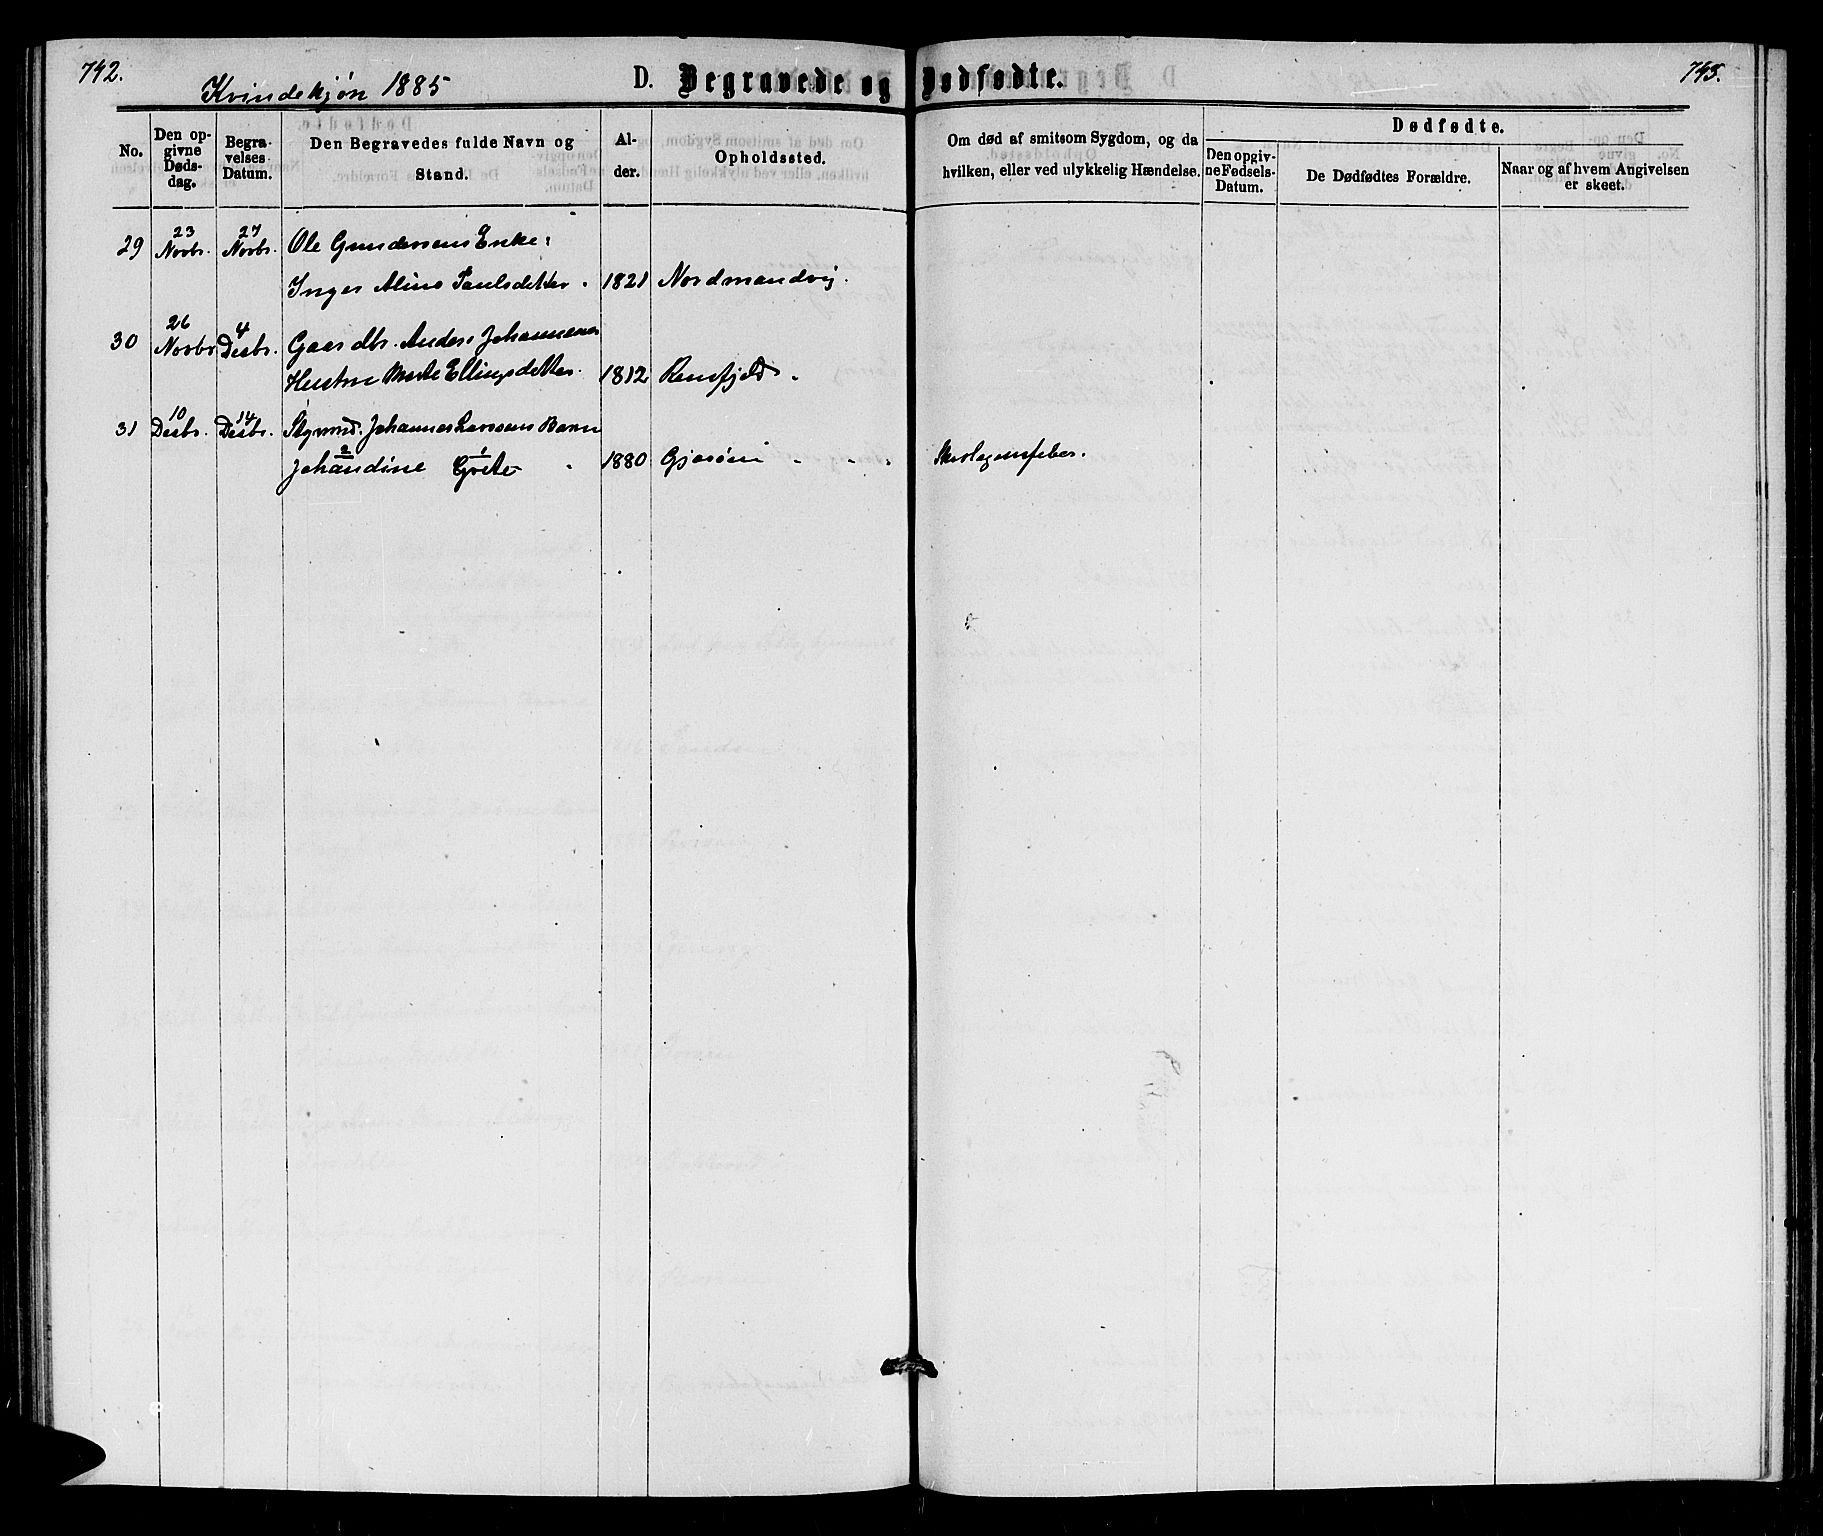 742.
Kvindekjøn 1885
D. Begravede og Dødfødte.
743.
No.
Den op-
givne
Døds-
dag.
Begra-
velses
Datum.
Den Begravedes fulde Navn og
Stand.
Al-
der.
Opholdssted.
Om død af smitsom Sygdom, og da
hvilken, eller ved ulykkelig Hændelse.
Dødfødte.
Den opgiv-
ne Fødsels-
Datum.
De Dødfødtes Forældre.
Naar og af hvem Angivelsen
er skeet.
29 23 Novbr. 27 Novbr. Ole Gundersens Enke:
Inger Aline Paulsdetter. 1821 Nordmandvig.
30 26 Novbr 4 Desbr. Gaardbr. Anders Johannesens
Hustru Marte Ellingsdetter. 1812 Rensfjeld.
31 10 Desbr. 14 Desbr. Johannes Larsens Barn
Johandine 2 Grete 1 1880 Skarlagensfeber.